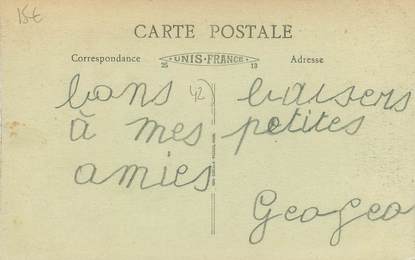 15€
CARTE POSTALE
Correspondance
UNIS-FRANCE
25
13
Adresse
42
bons baisers
à mes petites
amies
Geogeo